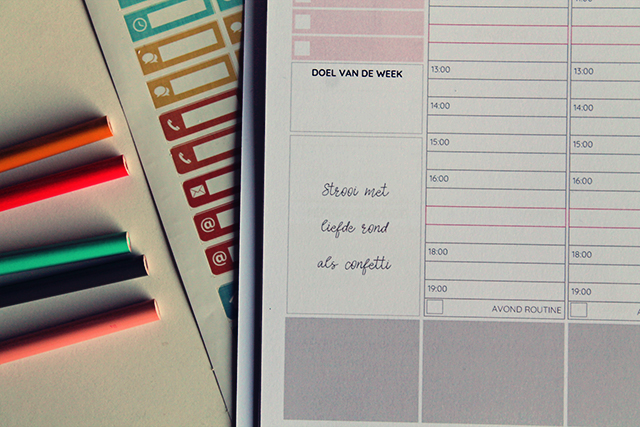 @
@
DOEL VAN DE WEEK
Strooi met
liefde rond
als confetti
13:00
14:00
15:00
16:00
18:00
19:00
AVOND ROUTINE
13:00
14:00
15:00
16:00
18:00
19:00